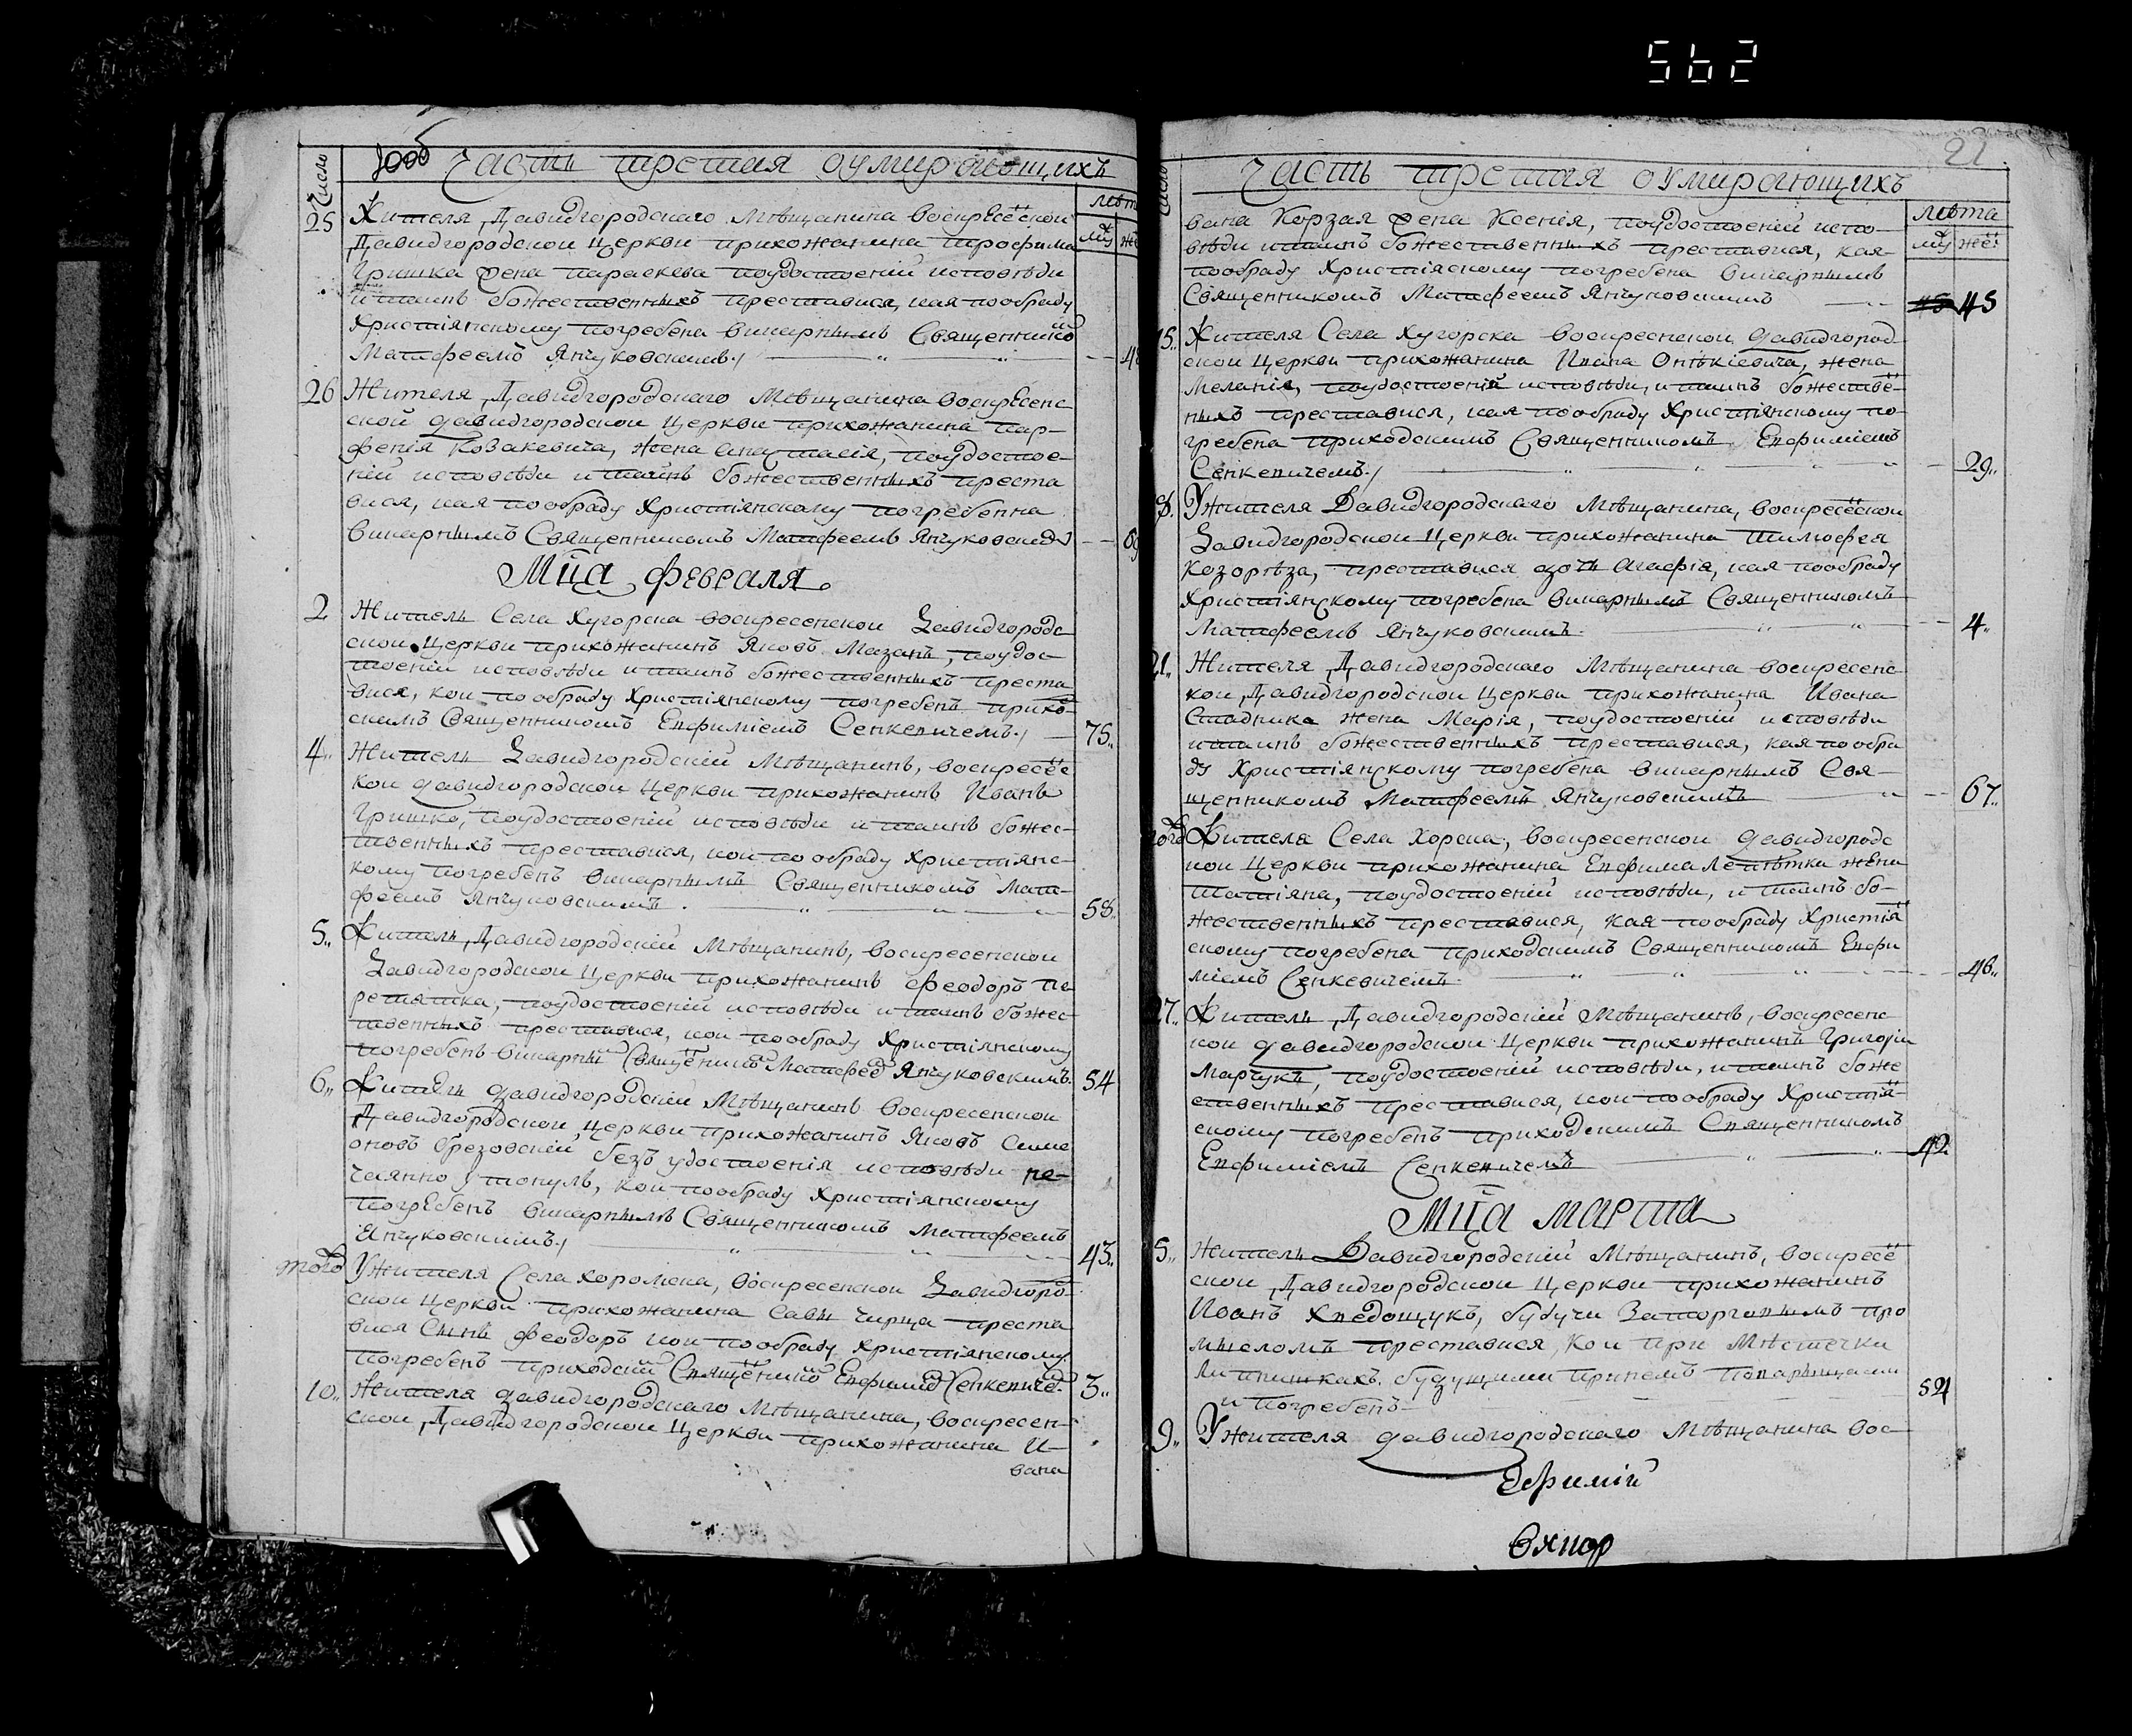 562
Число
Часть третая оумирающихъ
лѣта
25
Жителя Давидгородскаго Мѣщанина воскресёской
Давидгородской Церкви прихожанина Трофима
Гришка жена Параскева поудостоеніи исповѣди
и таинъ божественныхъ преставися, кая пообряду
Христіянскому погребена викарнымъ Священнико
Матфеемъ Янчуковскимъ./
26
Жителя Давидгородскаго Мѣщанина воскресенс
ской давидгородской Церкви прихожанина Пар-
фенія Козакевича, жена Анастасія, поудостое-
ніи исповѣди и таинъ божественныхъ преста
вися, кая пообряду Христіянскому погребенна
викарнымъ Священникомъ Матфеемъ Янчуковски
Мца февраля
2
Житель Села Хугорска воскресенской Давидгородс
ской Церкви прихожанинъ Яковъ Мазанъ, поудос
тоеніи исповѣди и таинъ божественныхъ преста
вися, кои пообряду Христіянскому погребенъ прихо
скимъ Священникомъ Евфиміемъ Сенкевичемъ./
75
4
Житель Давидгородскій Мѣщанинъ, воскресёс
кой давидгородской Церкви прихожанинъ Иванъ
Гришко, поудостоеніи исповѣди и таинъ божес-
твенныхъ преставися, кои пообряду Христіянс-
кому погребенъ викарнымъ Священникомъ Мат-
феемъ Янчуковскимъ.
58
5
Житель Давидгородскій Мѣщанинъ, воскресенской
Давидгородской Церкви прихожанинъ Феодоръ Пе
ретятка, поудостоеніи исповѣди и таинъ божес
твенныхъ преставися, кои пообряду Христіянскому
погребенъ викарны Священико Матфее Янчуковскимъ.
54
6
Житель Давидгородскій Мѣщанинъ воскресенской
Давидгородской Церкви прихожанинъ Яковъ Симе
оновъ Брезовскій безъ удостоенія исповѣди не-
чаянно утонулъ, кои пообряду Христіянскому
погребенъ викарнымъ Священникомъ Матфеемъ
Янчуковскимъ./
43
того
У жителя Села Хоромска, воскресенской Давидгоро
ской Церкви прихожанина Савы Чирца преста
вися Сынъ Феодоръ кои пообряду Христіянскому
погребенъ приходски Священико Евфиміе Сенкевиче.
3
10
Жителя давидгородскаго Мѣщанина, воскресен-
ской Давидгородской Церкви прихожанина И-
вана
22
Часть третая оумирающихъ
лѣта
вана Корзая жена Ксенія, поудостоеніи испо-
вѣди и таинъ божественныхъ преставися, кая
пообряду Христіяскому погребена викарнымъ
Священникомъ Матфеемъ Янчуковскимъ
45
15
Жителя Села Хугорска воскресенской давидгород-
ской Церкви прихожанина Ивана Онткіевича, жена
Меланія, поудостоеніи исповѣди, и таинъ божествё-
ныхъ преставися, кая пообряду Христіянскому по-
гребена приходскимъ Священникомъ Евфиміемъ
Сенкевичемъ./
29
У жителя Давидгородскаго Мѣщанина, воскресёской
Давидгородской Церкви прихожанина Тимофея
Козорѣза, преставися дочь Агафія, кая пообряду
Христіянскому погребена викарнымъ Священникомъ
Матфеемъ Янчуковскимъ.
4
21
Жителя Давидгородскаго Мѣщанина воскресенс-
кои Давидгородской Церкви прихожанина Ивана
Стадника жена Марія, поудостоеніи исповѣди
и таинъ божественныхъ преставися, кая пообря
ду Христіянскому погребена викарнымъ Свя-
щенникомъ Матфеемъ Янчуковскимъ
67
того
Жителя Села Хорска, воскресенской давидгородс
кой Церкви прихожанина Евфима Лепѣтка жена
Татіяна, поудостоеніи исповѣди, и таинъ бо-
жественныхъ преставися, кая пообряду Христія̈
скому погребена приходскимъ Священникомъ Евфи
міемъ Сенкевичемъ.
46
27
Житель Давидгородскій Мѣщанинъ, воскресенс
кой давидгородской Церкви прихожанинъ Григорій
Марчукъ, поудостоеніи исповѣди, и таинъ боже
ственныхъ преставися, кои пообряду Христія̈-
скому погребенъ приходскимъ Священникомъ
Евфиміемъ Сенкевичемъ
Мца Марта
5
Житель Давидгородскій Мѣщанинъ, воскресё
ской Давидгородской Церкви прихожанинъ
Иванъ Хведощукъ, будучи За торговымъ про
мысломъ преставися, кои при Мѣстечки
Липнишкахъ будущими при немъ Товарыщами
и погребенъ
9
У жителя давидгородскаго Мѣщанина вос
Ефимій